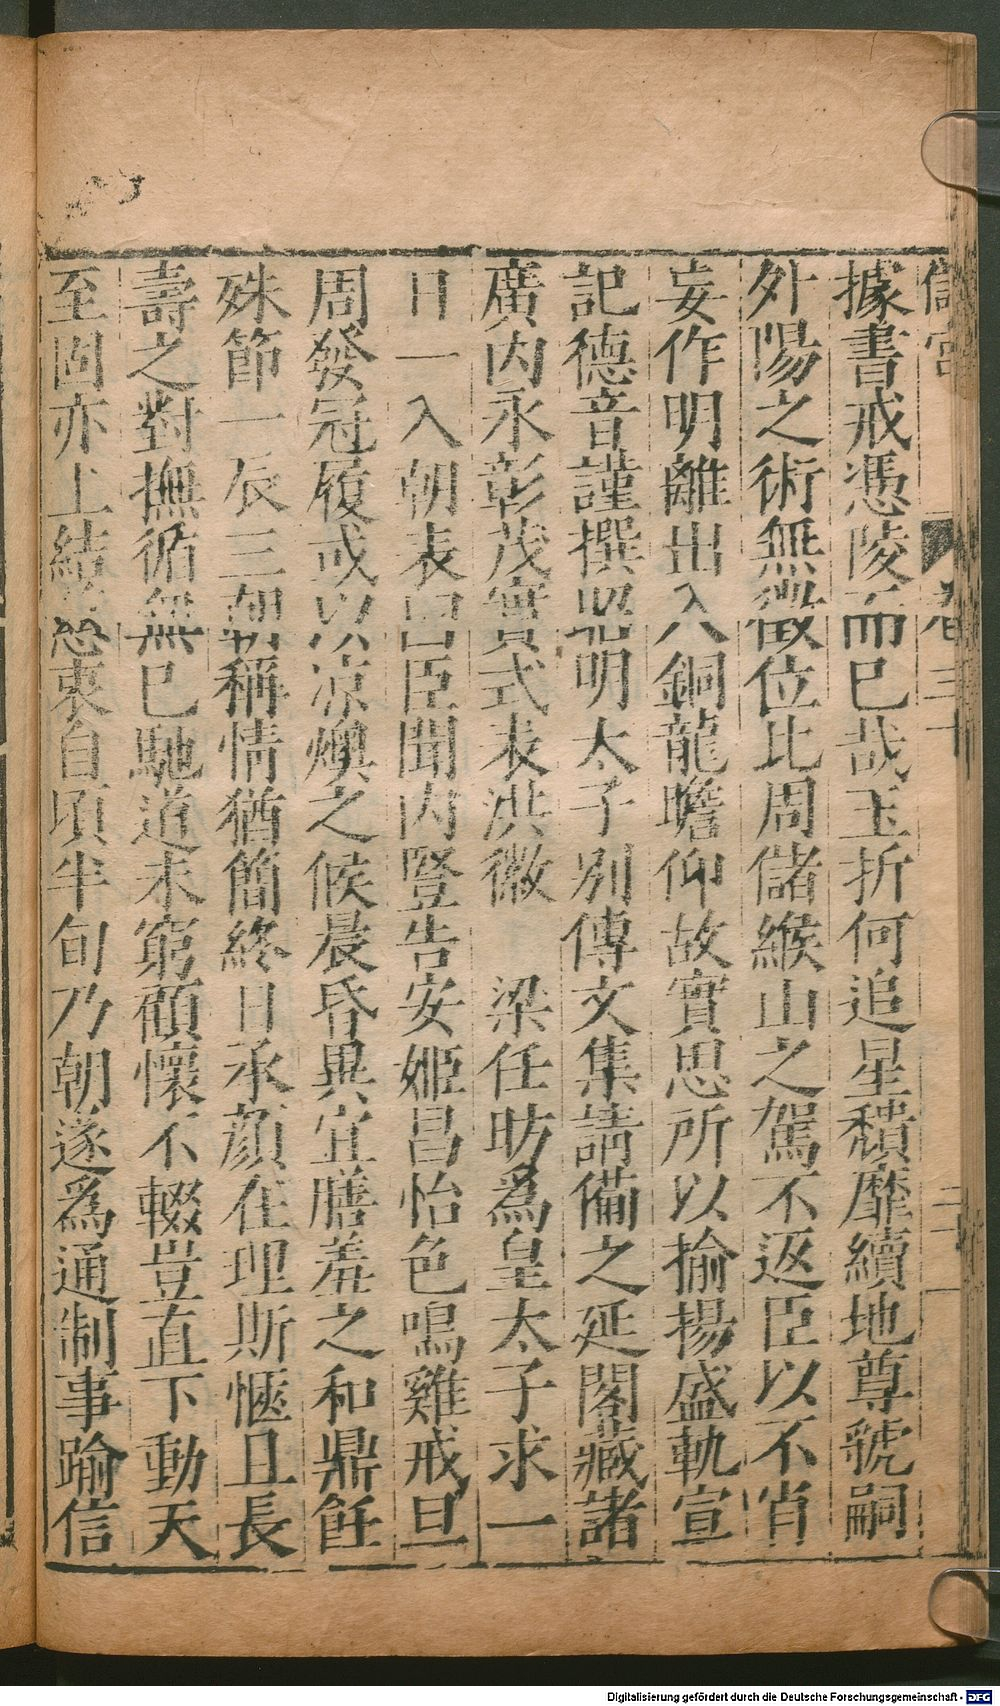 儲宮 卷三十
據書戒慿陵而巳哉玉折何追星穨靡續地尊號嗣
外陽之術無徴位比周儲緱山之駕不返臣以不肖
妄作明離出入銅龍瞻仰故實思所以揄揚盛軌宣
記德音謹撰昭明太子別傳文集請備之延閣藏諸
廣内永彰茂實式表洪徽 梁任昉爲皇太子求一
日一入朝表曰臣聞内豎告安姬昌怡色鳴雞戒旦
周發冠履或以凉燠之候晨昏異宜膳羞之和鼎飪
殊節一辰三朝稱情猶簡終日承顔在理斯愜且長
壽之對撫循無巳馳道未窮顧懷不輟豈直下動天
至固亦上結慈衷自頃半旬乃朝遂爲通制事踰信
Digitalisierung gefördert durch die Deutsche Forschungsgemeinschaft - DFG